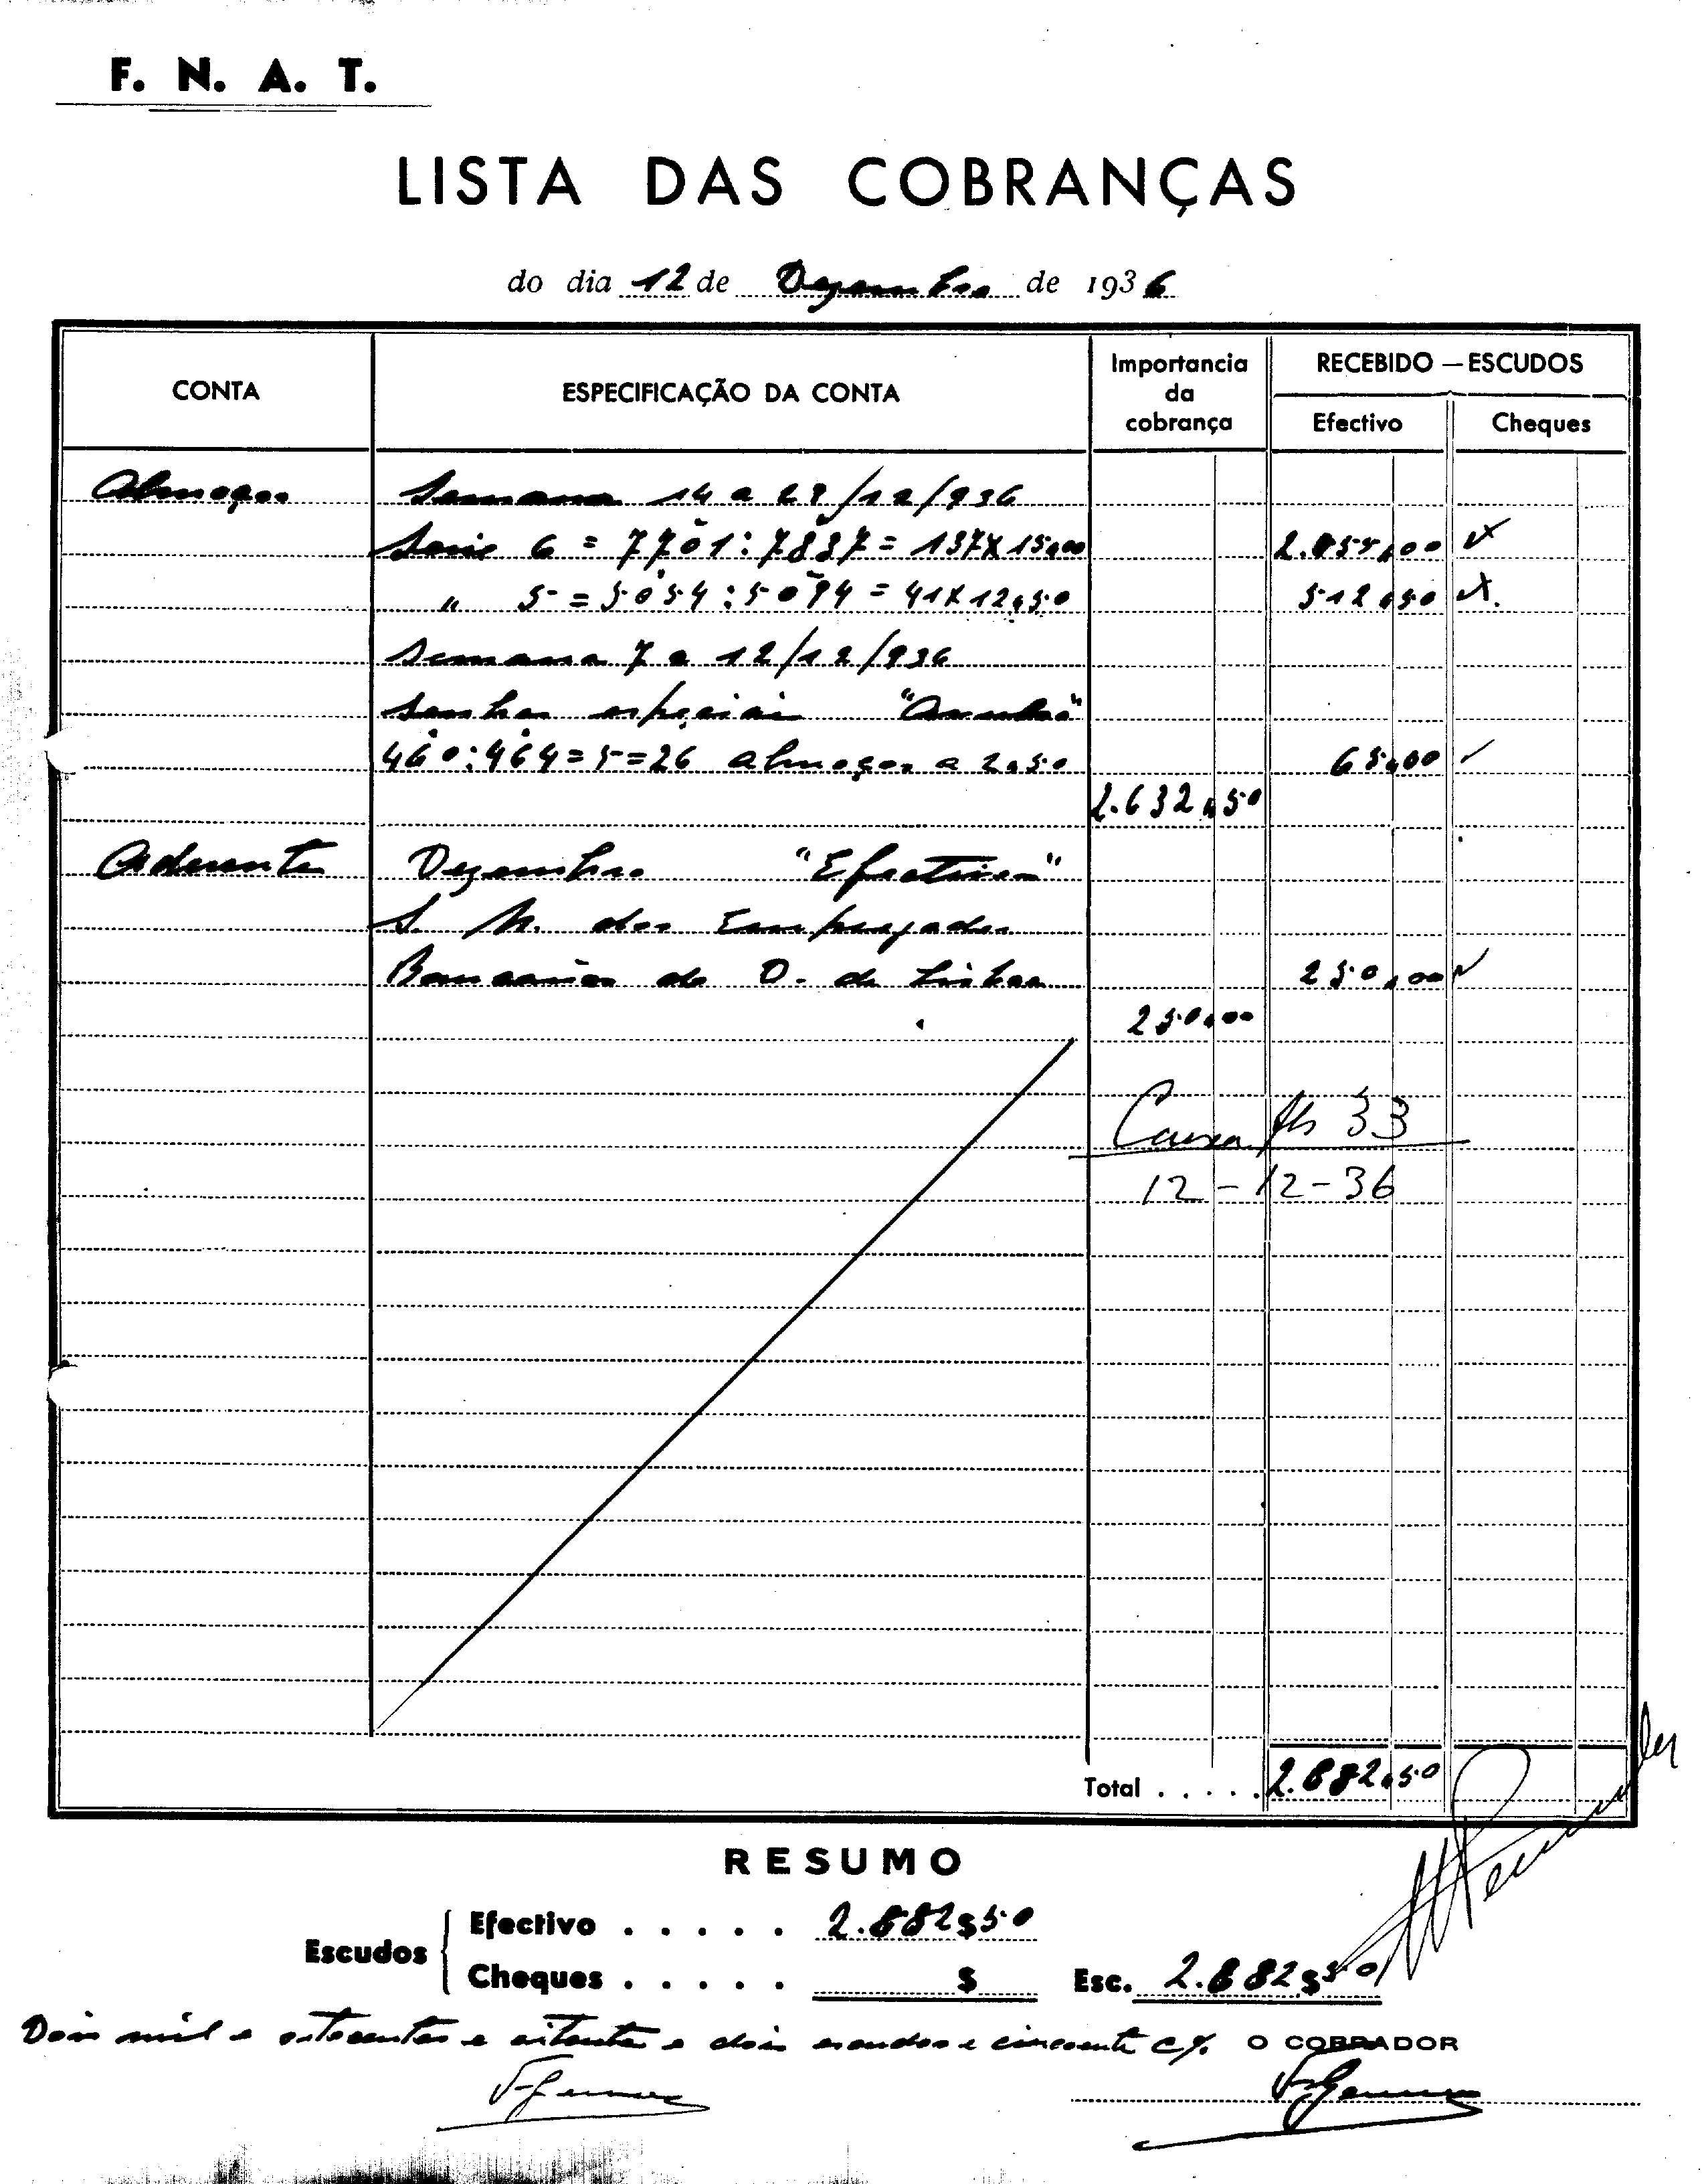 F. N. A. T.
LISTA DAS COBRANÇAS
do dia 12 de Dezembro de 1936
CONTA
ESPECIFICAÇÃO DA CONTA
Importancia da cobrança
RECEBIDO — ESCUDOS
Efectivo
Cheques
Almoços Semana 14 a 19/12/936
Serie 6 = 7701:7837 = 137X15,00 2.055,00
" 5 = 5054:5094 = 41X12,50 512,50
Semana 7 a 12/12/936
Senhas especiais
460:464=5=26 almoços a 2,50 65,00
2.632,50
Aderentes Dezembro "Efectivos"
S. N. dos Empregados
Bancarios do D. de Lisboa 250,00
250,00
Caixa fls 33
12-12-36
Total . . . . . 2.882,50
RESUMO
Escudos
Efectivo . . . . . 2.882$50
Cheques . . . . . $
Esc. 2.882$50
Dois mil e oitocentos e oitenta e dois escudos e cincoenta c/.
O COBRADOR